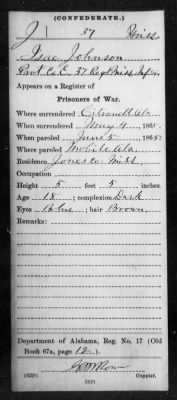 (CONFEDERATE.)
J | 37 | Miss
Johnson
Pvt Co. E, 37 Regt Miss. Inf.
Appears on a Register of
Prisoners of War.
Where surrendered Citronelle Ala
When surrendered May 4, 1865.
When paroled June 5 1865
Where paroled Mobile Ala.
Residence, Jones co Miss.
Occupation
Height 5 feet 5 inches
Age 18; complexion Dark
Eyes Blue; hair Brown
Remarks:
Department of Alabama, Reg. No. 17 (Old
Book 67a, page 12.).
(639)
Copyist.